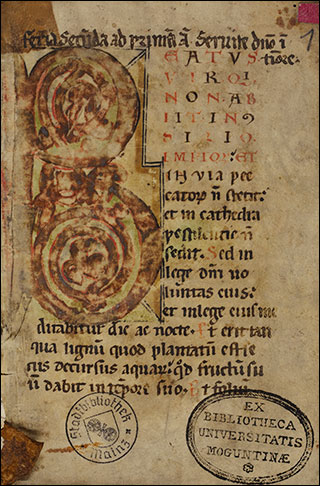 feria Secunda ad primā A Seruite dno ī
timore.
1
EATVS
VIRQI
NON AB
IIT IN 9
SILIO
IMPIOR: ET
IN VIA pec
catoꝝ n̄ stetit:
et in cathedra
pestilencie n̄
sedit. Sed in
lege dn̄i uo
luntas eius:
et in lege eius me
ditabitur die ac nocte. Et erit tan
qua lignum quod plantatum est se
cus decursus aquaꝝ: qd fructū su
ū dabit in tēpore suo. Et foliū
Stadtbibliothek Mainz
EX
BIBLIOTHECA
UNIVERSITATIS
MOGUNTINÆ